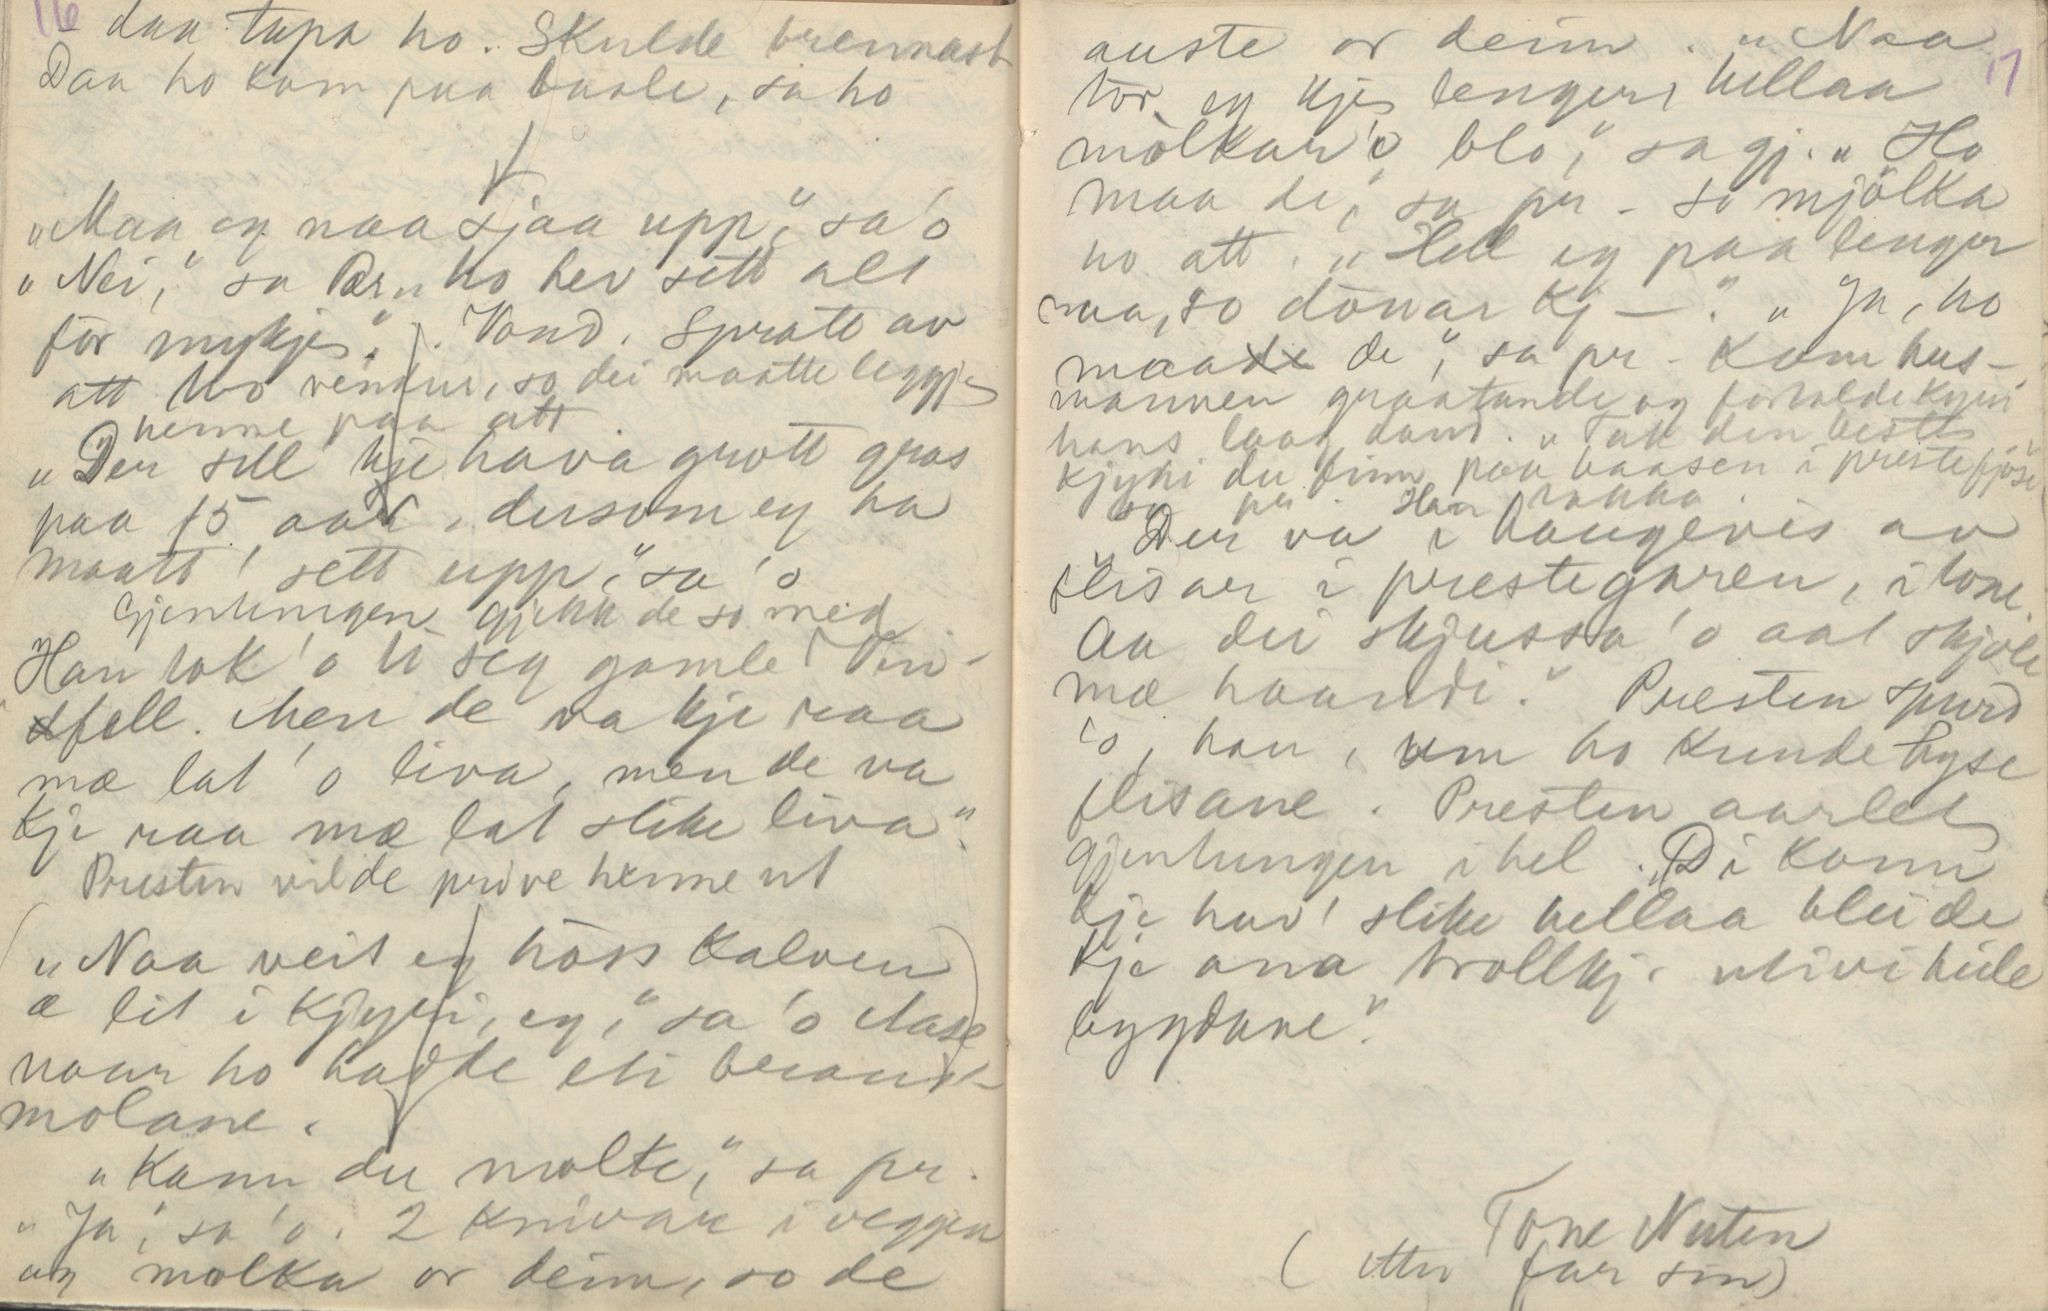 16
daa tapa ho. Skulde brennast
Daa ho kom paa baale, sa ho
"Maa eg naa sjaa upp," sa 'o
"Nei," sa Pær "ho hev sett alt
för mykje". Vond. Spratt av
att tvo vendur, so dei maatte leggje
henne paa att
"Der sill kje hava grott gras
paa 15 aar, dersom eg ha
maatt' sett upp," sa 'o
Gjentungen gjekk de so med
Han tok 'o ti seg gamle Vin-
fell. Men de va kje raa
mæ lat 'o liva, men de va
kje raa mæ lat slike liva".
Presten vilde pröve henne ut
("Naa veit eg höss kalven
æ lit i kjyri, eg," sa 'o Aase)
naar ho hadde eti beraust-
molane.
"Kann du molke," sa pr.
"Ja," sa 'o. 2 knivar i veggen
og molka or deim, so de
17
auste or deim. "Naa
tör eg kje lenger, hellaa
mölkar 'o blo," sa gj. "Ho
maa de," sa pr - so mjölka
ho att. "Hell eg paa lenger
naa, so dönar kj —." "Ja, ho
maa de", sa pr - Kom hus-
mannen graatande og fortalde kyri
hans laag daud. "Tak den beste
kjyri du finn paa baasen i prestefjöse"
sa pr. Han
"Der va i haugevis av
flisar i prestegaren, i tone.
Aa dei skjussa 'o aat skjole
mæ haandi." Presten spurd
'o, han, um ho kunde hyse
flisane. Presten aarlet
gjentungen ihel. "Di kann
kje hav' slike hellaa blei de
kje ana trollkj. utivi heile
bygdane".
Tone Nuten
(etter far sin)